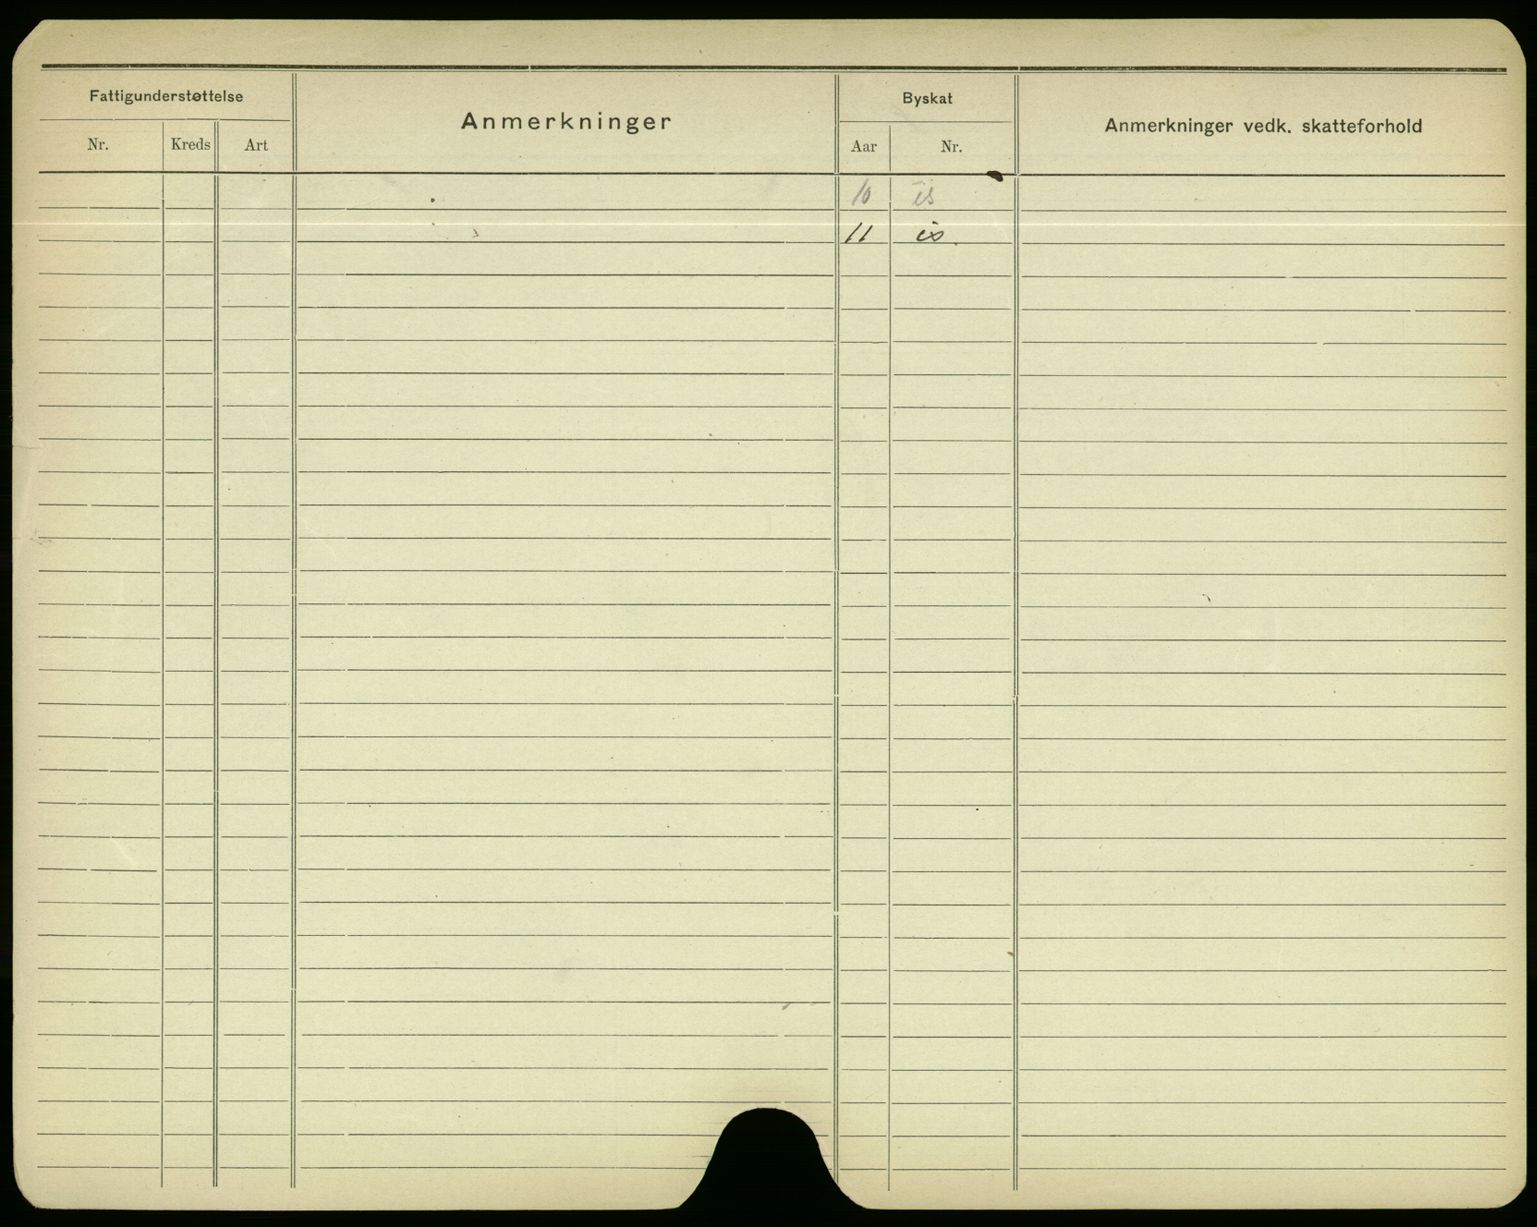 Fattigunderstøttelse
Nr. Kreds Art
Anmerkninger
Byskat
Aar Nr.
Anmerkninger vedk. skatteforhold
10 is
11 is